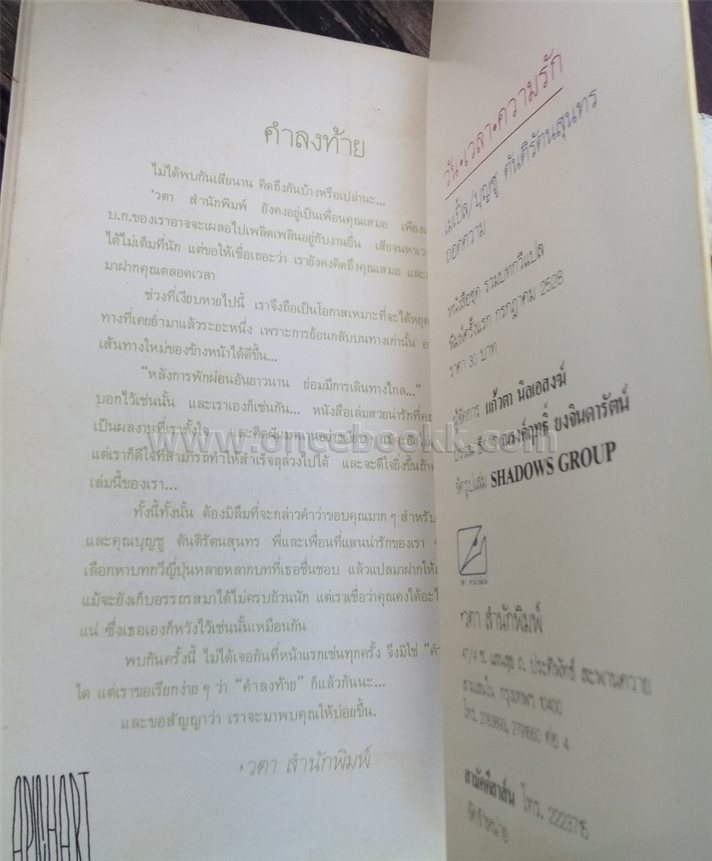 คำลงท้าย
ไม่ได้พบกันเสียนาน คิดถึงกันบ้างหรือเปล่านะ...
'วตา สำนักพิมพ์ ยังคงอยู่เป็นเพื่อนคุณเสมอ เพียง
บ.ก.ของเราอาจจะเผลอไปเพลิดเพลินอยู่กับงานอื่น เสียจนหาเว
ได้ไม่เต็มที่นัก แต่ขอให้เชื่อเถอะว่า เรายังคงคิดถึงคุณเสมอ และ
มาฝากคุณตลอดเวลา
ช่วงที่เงียบหายไปนี้ เราจึงถือเป็นโอกาสเหมาะที่จะได้หยุด
ทางที่เคยย่ำมาแล้วระยะหนึ่ง เพราะการย้อนกลับบนทางเก่านั้น อ
เส้นทางใหม่ของข้างหน้าได้ดีขึ้น...
"หลังการพักผ่อนอันยาวนาน ย่อมมีการเดินทางไกล..."
บอกไว้เช่นนั้น และเราเองก็เช่นกัน... หนังสือเล่มสวยน่ารักที่ค
เป็นผลงานที่เราตั้งใจ และคิดฝันมานาน
แต่เราก็ดีใจที่สามารถทำให้สำเร็จลุล่วงไปได้ และจะดีใจยิ่งขึ้นถ้า
เล่มนี้ของเรา...
ทั้งนี้ทั้งนั้น ต้องมิลืมที่จะกล่าวคำว่าขอบคุณมาก ๆ สำหรับ
และคุณบุญชู ตันติรัตนสุนทร พี่และเพื่อนที่แสนน่ารักของเรา
เลือกหาบทกวีญี่ปุ่นหลายหลากบทที่เธอชื่นชอบ แล้วแปลมาฝากให้
แม้จะยังเก็บอรรถรสมาได้ไม่ครบถ้วนนัก แต่เราเชื่อว่าคุณคงได้อะไ
แน่ ซึ่งเธอเองก็หวังไว้เช่นนั้นเหมือนกัน
พบกันครั้งนี้ ไม่ได้เจอกันที่หน้าแรกเช่นทุกครั้ง จึงมิใช่ "คำ
ใด แต่เราขอเรียกง่าย ๆ ว่า "คำลงท้าย" ก็แล้วกันนะ...
และขอสัญญาว่า เราจะมาพบคุณให้บ่อยขึ้น.
'วตา สำนักพิมพ์
APICHART
วัน•เวลา•ความรัก
เมเปิ้ล/บุญชู ตันติรัตนสุนทร
ถอดความ
หนังสือชุด รวมบทกวีแปล
พิมพ์ครั้งแรก กรกฎาคม 2528
ราคา 30 บาท
ผู้จัดการ แก้วตา นิลเอสงฆ์
ณรงค์ฤทธิ์ ยงจินดารัตน์
จัดรูปเล่ม SHADOWS GROUP
'วตา สำนักพิมพ์
47/4 ซ. แสนสุข ถ. ประดิพัทธ์ สะพานควาย
สามเสนใน กรุงเทพฯ 10400
โทร. 2791660 ต่อ 4
สามัคคีสาส์น โทร. 2223715
จัดจำหน่าย
www.oncebookk.com